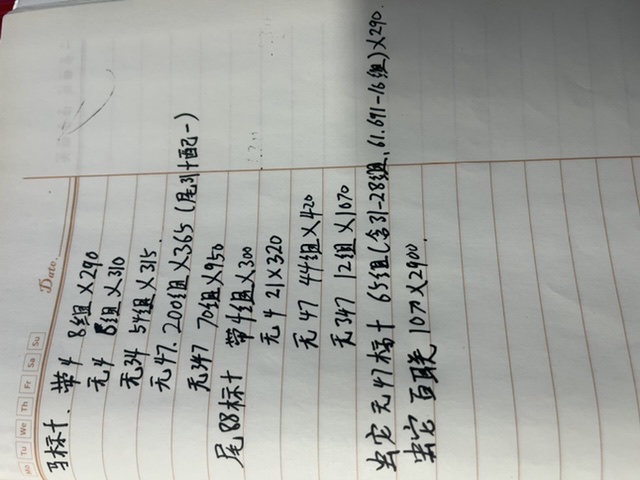 Mo Tu We Th Fr Sa Su
Date.
标十、带4 8组 X290
无4 8组 X310
无34 54组 X315
无47. 200组 X365 (尾3十配一)
无347 70组 X950
尾88标十 带4组 X300
无4 21X320
无47 44组 X420
无347 12组 X1070
出它 无47标十 65组(含31-28组、61.691-16组) X290.
出它 百联 10万X2900.